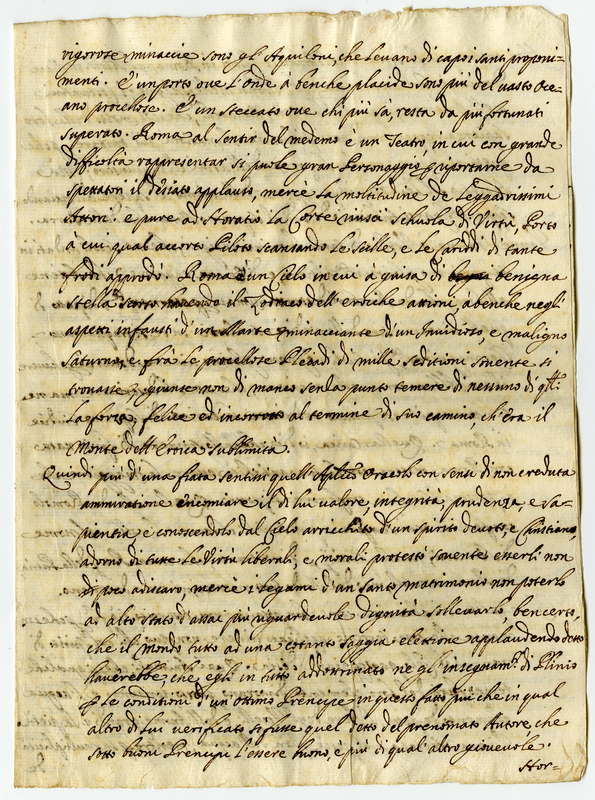 vigorose, minaccie sono gl'Aquiloni, che levano di capo i santi proponi=
menti. È un porto ove l'onde à benche placide sono più del vasto Oce=
ano procellose. È un steccato ove chi più sà, resta da più fortunati
superato. Roma al sentir del medemo è un Teatro, in cui con grande
difficoltà rappresentar si puole gran Personaggio, riportarne da
spettatori il desiato applauso, mercè la moltitudine de Leggiadrissimi
Attori. e pure ad'Horatio la Corte riuscì schuola di Virtù, Porto
à cui qual accorto Piloto scansando le Scille, e le Cariddi di tante
frodi approdò. Roma è un Cielo in cui à guisa di benigna
Stella il Zodiaco dell'eroiche attioni, à benche negli
aspetti infausti d'un Marte minacciante d'un Invidioso, e maligno
Saturno, e frà le procellose Pleiadi di mille seditioni sovente si
trovasse, giunse non di manco senza punto temere di nessuno di
la forza, felice ed'incorrotto al termine di suo camino, ch'era il
Monte dell'Eroica sublimità.
Quindi più d'una fiata sentissi quell' Oracolo con sensi di non creduta
ammiratione encomiare il di lui valore, integrità, prudenza, e sa=
pientia e conoscendolo dal Cielo arricchito d'un spirito devoto, e Christiano,
adorno di tutte le Virtù liberali, e morali protestò sovente esserli non
di poco adiscaro, mercè i legami d'un santo matrimonio non poterlo
ad alto stato d'assai più riguardevole dignità sollevarlo, ben certo,
che il mondo tutto ad una cotanto saggia elettione applaudendo detto
haverebbe, che egli in tutto addottrinato negl'insegnam.ti di Plinio
le conditioni d'un ottimo Prencipe in questo fatto più che in qual
altro di lui verificato si fusse quel detto del prenomato Autore, che
sotto buoni Prencipi l'essere buono, è più di qual'altro giovevole.
Hor=